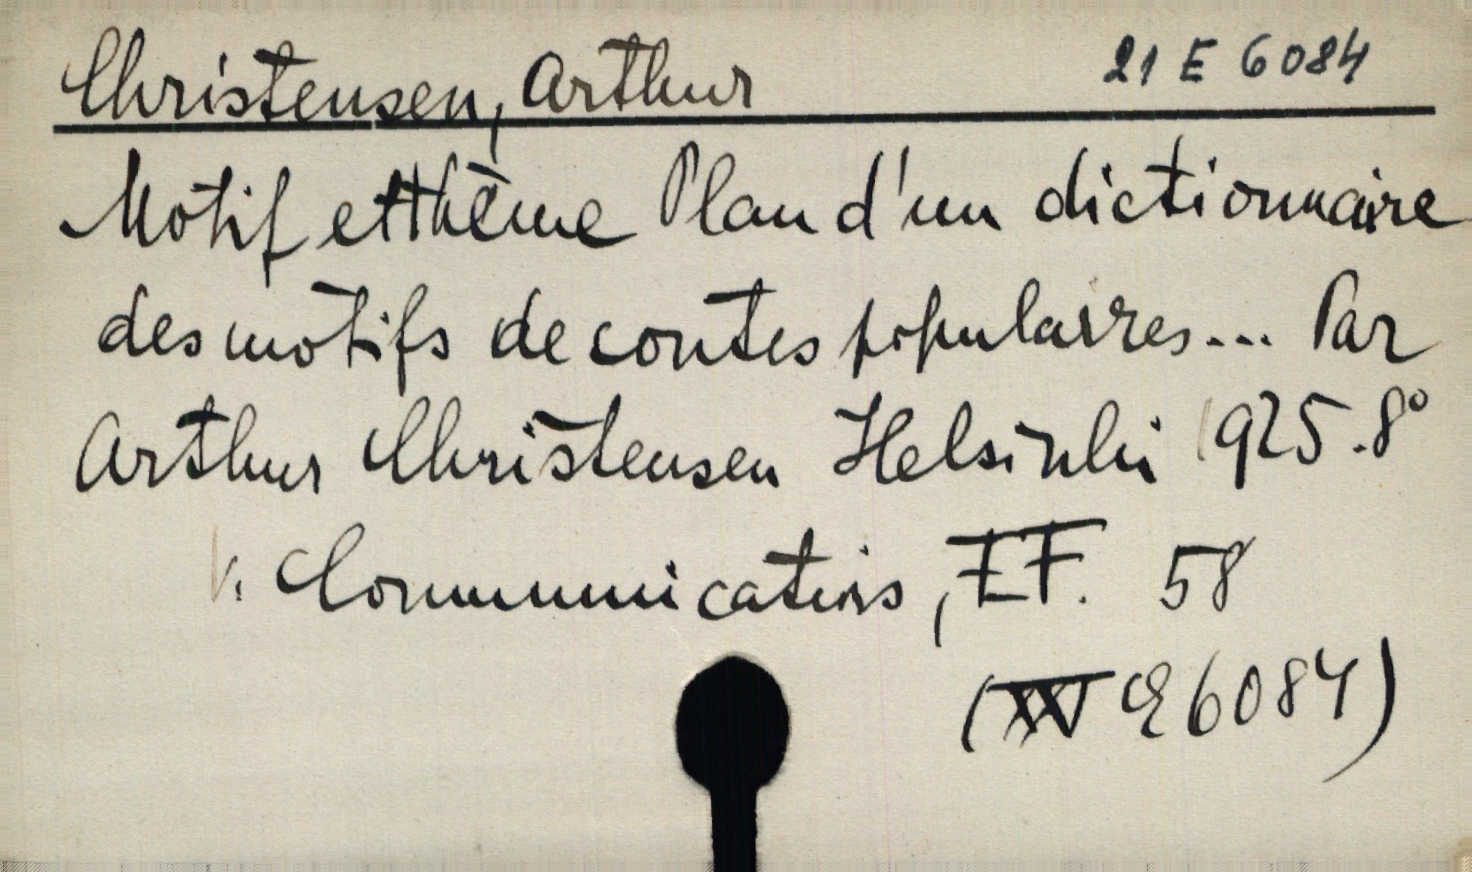 Christensen, Arthur 21 E 6084
Motif et thème Plan d'un dictionnaire
des motifs de contes populaires... Par
Arthur Christensen Helsinki 1925. 8°
V. Communications, F F. 58
( E 6084)